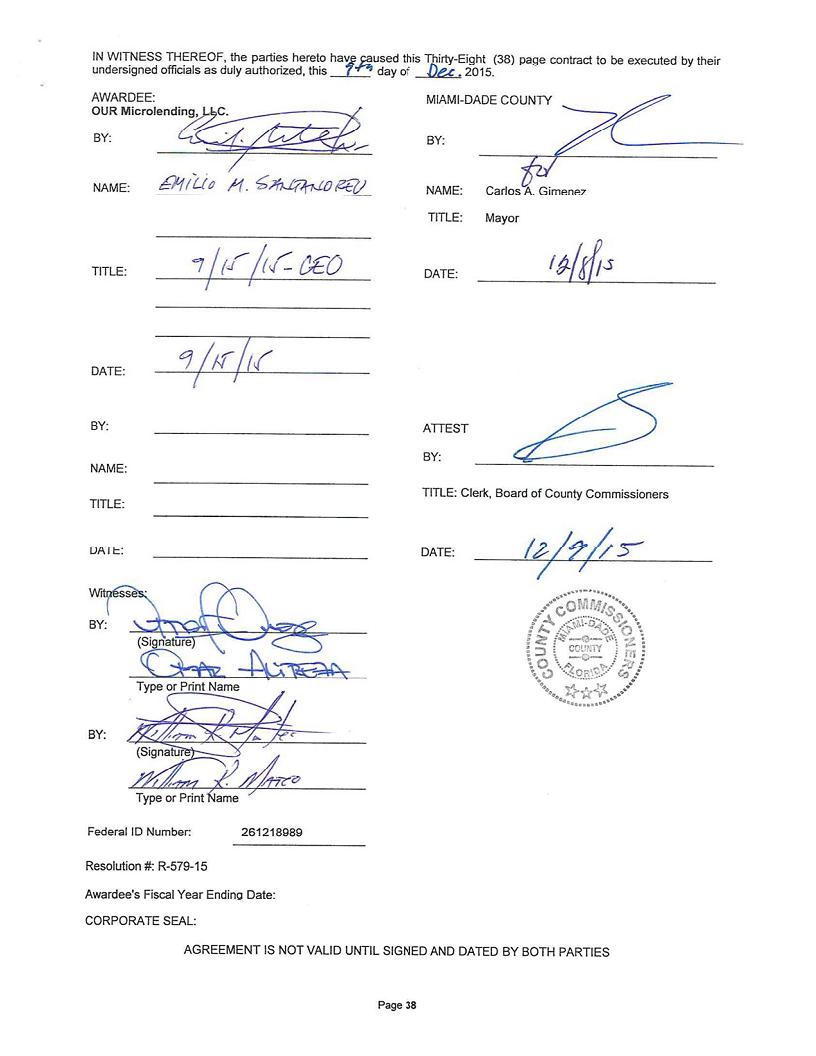 IN WITNESS THEREOF, the parties hereto have caused this Thirty-Eight (38) page contract to be executed by their
undersigned officials as duly authorized, this 9th day of Dec. 2015.
AWARDEE:
OUR Microlending, LLC.
BY:
NAME: EMILIO M. SANTANDREU
TITLE: 9/15/15 - CEO
DATE: 9/15/15
BY:
NAME:
TITLE:
DATE:
Witnesses:
BY:
(Signature)
Omar
Type or Print Name
BY:
(Signature)
William R.
Type or Print Name
Federal ID Number: 261218989
Resolution #: R-579-15
Awardee's Fiscal Year Ending Date:
CORPORATE SEAL:
MIAMI-DADE COUNTY
BY:
for
NAME: Carlos A. Gimenez
TITLE: Mayor
DATE: 12/8/15
ATTEST
BY:
TITLE: Clerk, Board of County Commissioners
DATE: 12/9/15
COUNTY COMMISSIONERS
MIAMI-DADE
COUNTY
FLORIDA
AGREEMENT IS NOT VALID UNTIL SIGNED AND DATED BY BOTH PARTIES
Page 38